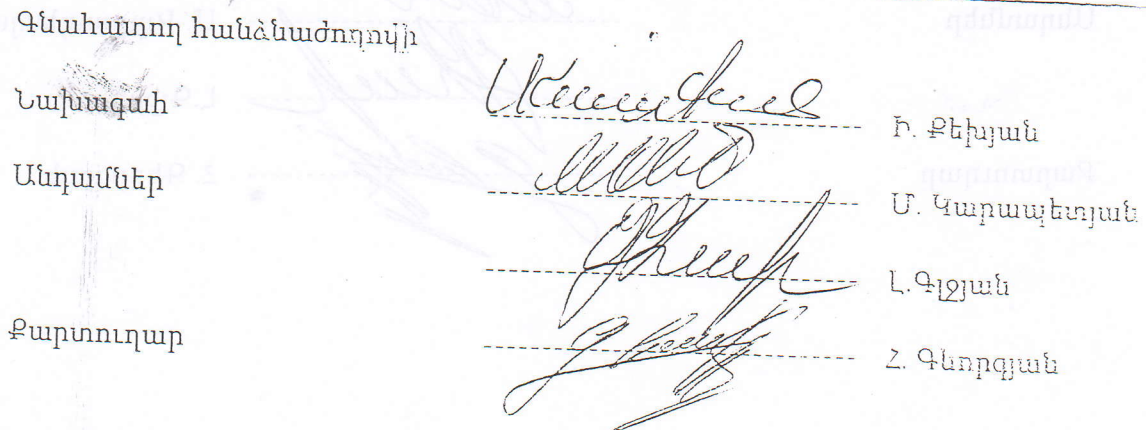 Գնահատող հանձնաժողովի
Նախագահ Ի. Քեխյան
Անդամներ Մ. Կարապետյան
Լ.Գլջյան
Քարտուղար Հ. Գևորգյան